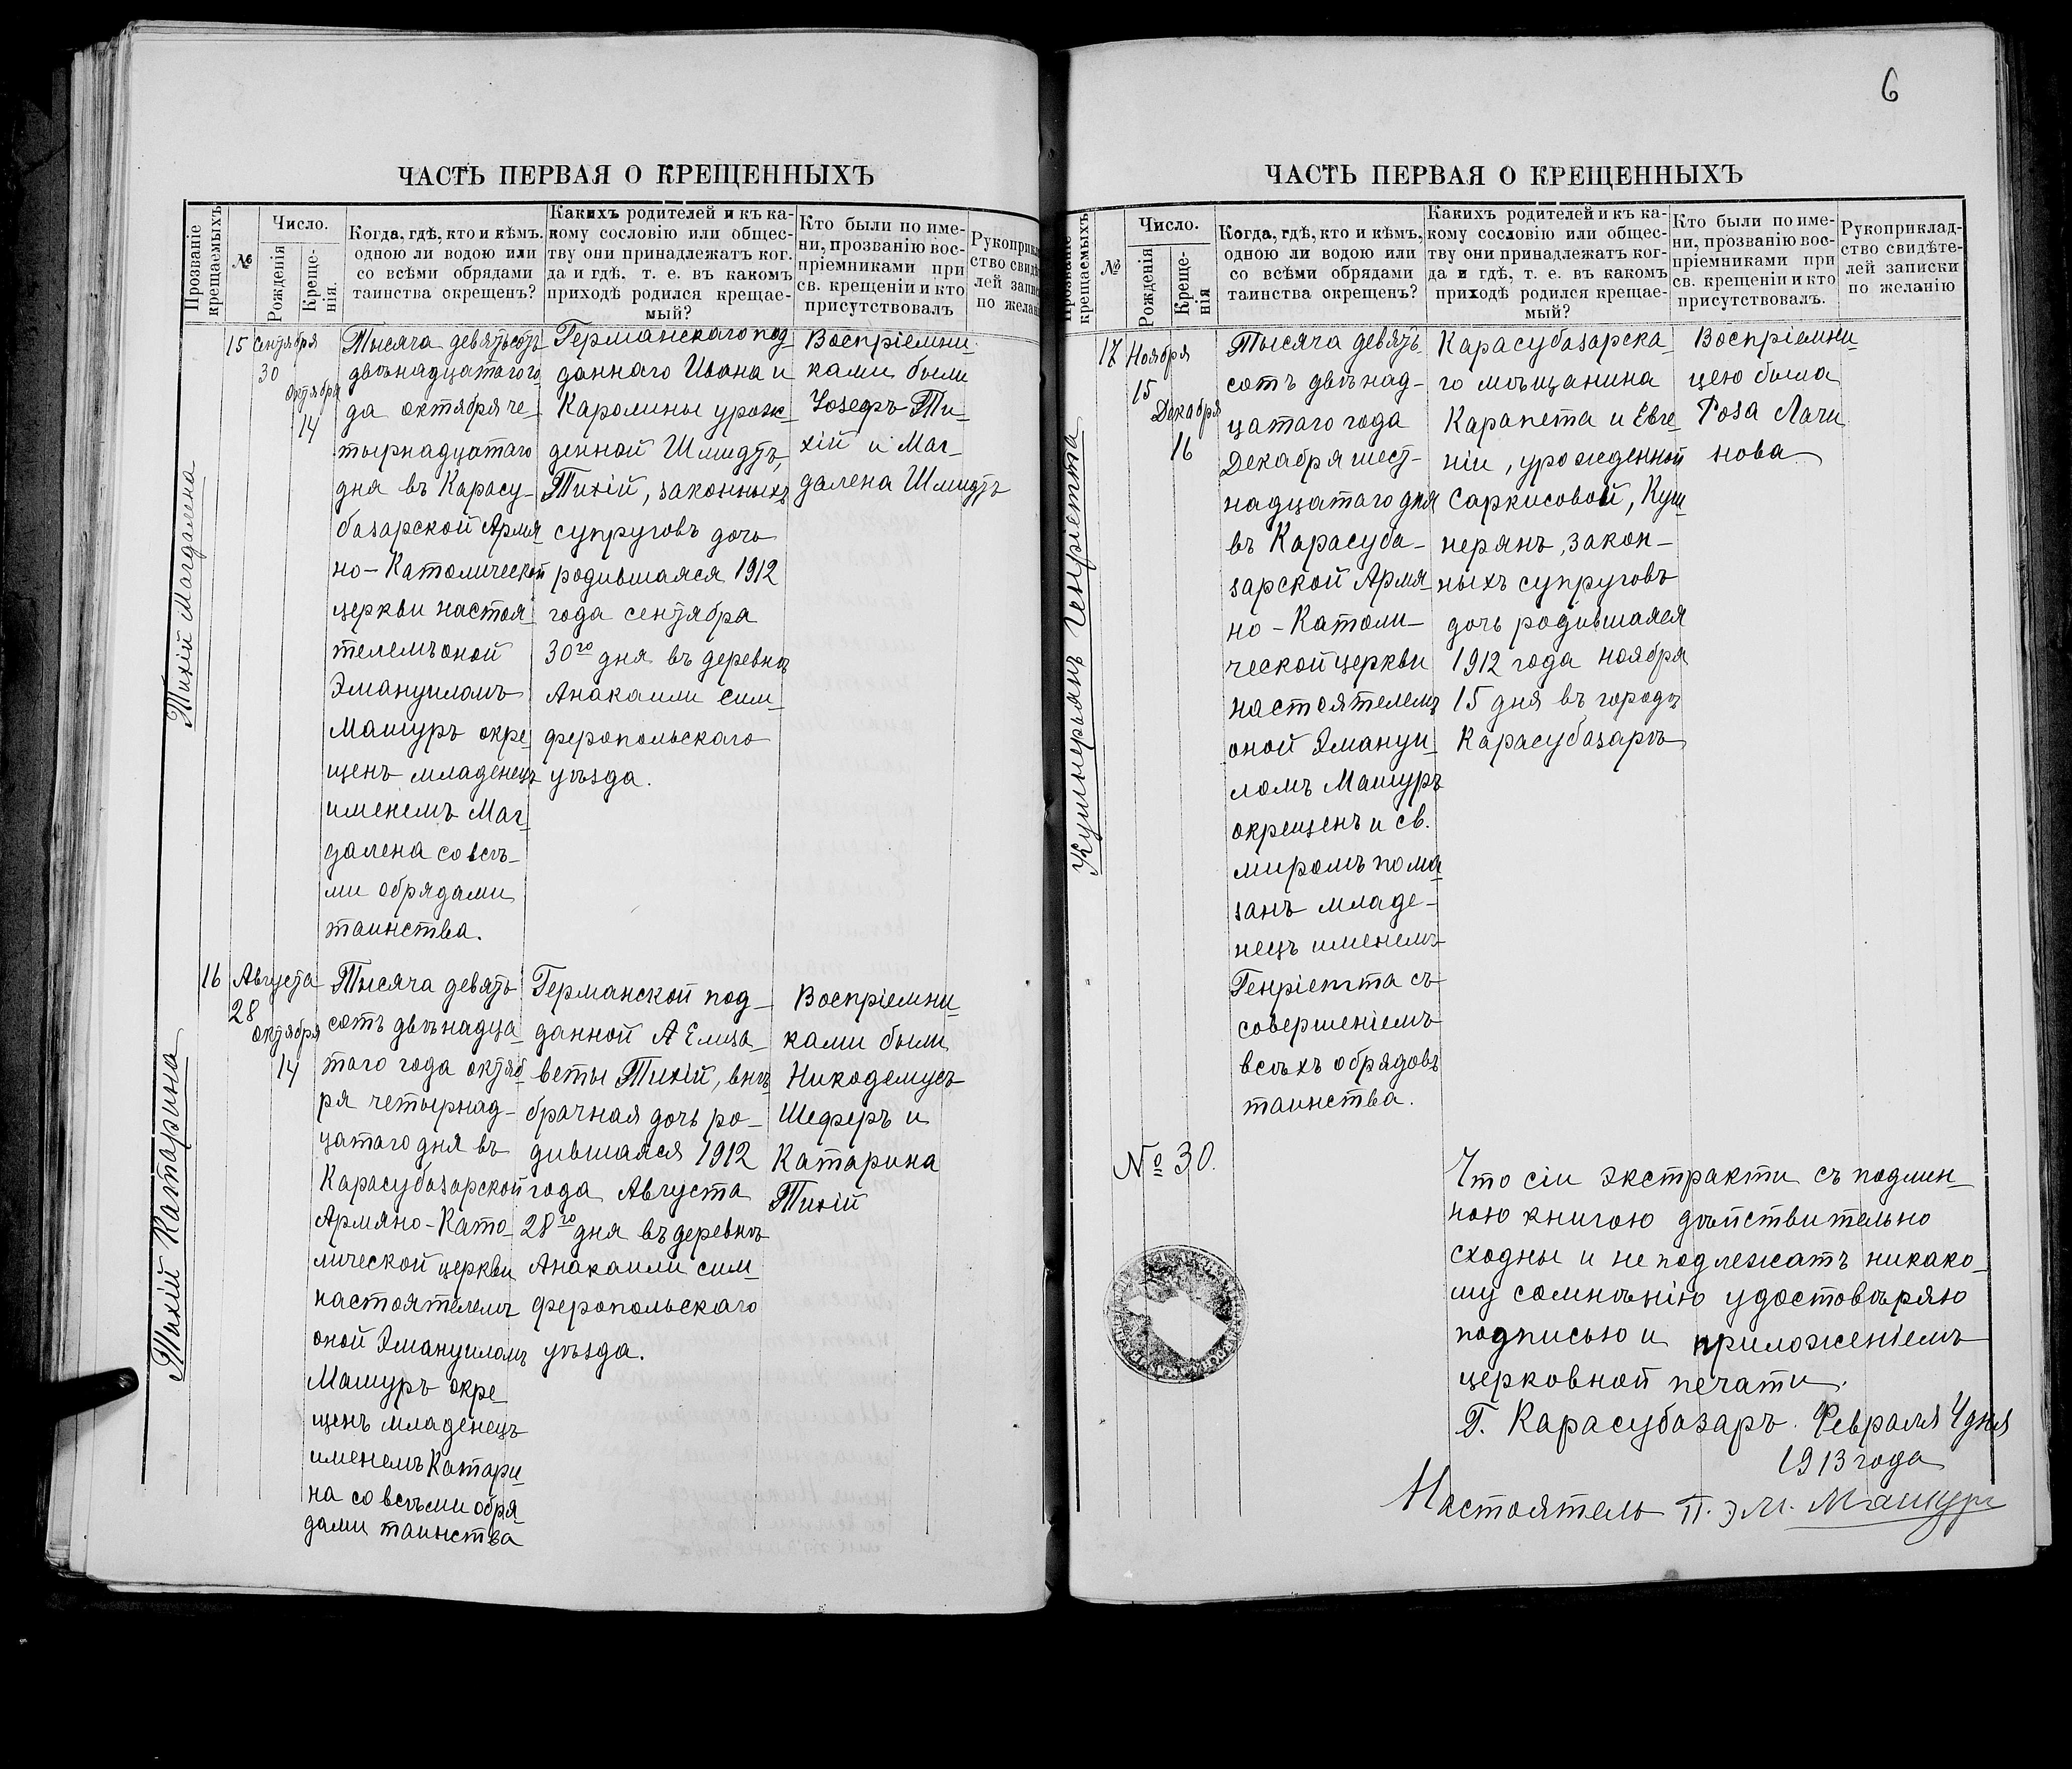 6
ЧАСТЬ ПЕРВАЯ О КРЕЩЕННЫХЪ
Прозваніе
крещаемыхъ
№
Число.
Рожденія
Креще-
нія.
Когда, гдѣ, кто и кѣмъ.
одною ли водою или
со всѣми обрядами
таинства окрещенъ?
Какихъ родителей и къ ка-
кому сословію или общес-
тву они принадлежатъ ког.
да и гдѣ, т. е. въ какомъ
приходѣ родился крещае-
мый?
Кто были по име-
ни, прозванію вос-
пріемниками при
св. крещеніи и кто
присутствовалъ
Рукоприк
ство свидѣ
лей запис
по желан
Тихій Магдалена
15
Сентября
30
Октября
14
Тысяча девятьсотъ
двѣнадцатаго го
да октября че-
тырнадцатаго
дня въ Карасу-
базарской Армя
но-Католической
церкви настоя-
телемъ оной
Эмануиломъ
Машуръ окре
щенъ младенецъ
именемъ Маг-
далена со всѣ-
ми обрядами
таинства.
Германскаго под-
даннаго Ивана и
Каролины урож-
денной Шмидтъ,
Тихій, законныхъ
супруговъ дочь
родившаяся 1912
года сентября
30го дня въ деревнѣ
Анакаили сим-
феропольскаго
уѣзда.
Воспріемни-
ками были
Іозефъ Ти-
хій и Маг-
далена Шмидтъ
Тихій Катарина
16
Августа
28
октября
14
Тысяча девять
сотъ двѣнадца-
таго года октяб
ря четырнад-
цатаго дня въ
Карасубазарской
Армяно-Като-
лической церкви
настоятелемъ
оной Эмануиломъ
Машуръ окре-
щенъ младенецъ
именемъ Катари-
на со всѣми обря-
дами таинства
Германской под-
данной А Елиза-
веты Тихій, внѣ-
брачная дочь ро-
дившаяся 1912
года Августа
28го дня въ деревнѣ
Анакаили сим-
феропольскаго
уѣзда.
Воспріемни-
ками были
Никодемусъ
Шеферъ и
Катарина
Тихій
ЧАСТЬ ПЕРВАЯ О КРЕЩЕННЫХЪ
Прозваніе
крещаемыхъ
№
Число.
Рожденія
Креще-
нія
Когда, гдѣ, кто и кѣмъ,
одною ли водою или
со всѣми обрядами
таинства окрещенъ?
Какихъ родителей и къ ка-
кому сословію или общес-
тву они принадлежатъ ког-
да и гдѣ, т. е. въ какомъ
приходѣ родился крещае-
мый?
Кто были по име-
ни, прозванію вос-
пріемниками при
св. крещеніи и кто
присутствовалъ.
Рукоприклад-
ство свидѣте-
лей записки
по желанію
Кушнерьянъ Генріетта
17
Ноября
15
Декабря
16
Тысяча девять
сотъ двѣнад-
цатаго года
Декабря шест-
надцатаго дня
въ Карасуба-
зарской Армя-
но-Католи-
ческой церкви
настоятелемъ
оной Эмануи-
ломъ Машуръ
окрещенъ и св.
миромъ пома-
занъ младе-
нецъ именемъ
Генріетта съ
совершеніемъ
всѣхъ обрядовъ
таинства.
Карасубазарска-
го мѣщанина
Карапета и Евге-
ніи, урожденной
Саркисовой, Куш-
нерянъ, закон-
ныхъ супруговъ
дочь родившаяся
1912 года ноября
15 дня въ городѣ
Карасубазарѣ
Воспріемни-
цею была
Роза Лачи
нова
№ 30.
Что сіи экстракти съ подлин-
ною книгою дѣйствительно
сходны и не подлежатъ никако-
му сомнѣнію удостовѣряю
подписью и приложеніемъ
церковной печати.
Г. Карасубазаръ. Февраля 4 дня
1913 года
Настоятель П. Эм. Машуръ